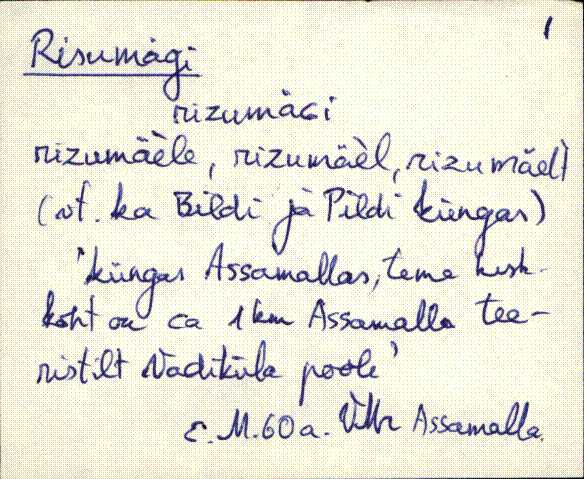 1
Risumägi
rizumäGi
rizumäèle, rizumäèl, rizumäelt
(vt. ka Bildi jà Pildi küngas)
'küngas Assamallas, tema kesk-
koht on ca 1 km Assamalla tee-
ristilt Vadiküla poole'
M. 60 a. VMr Assamalla.